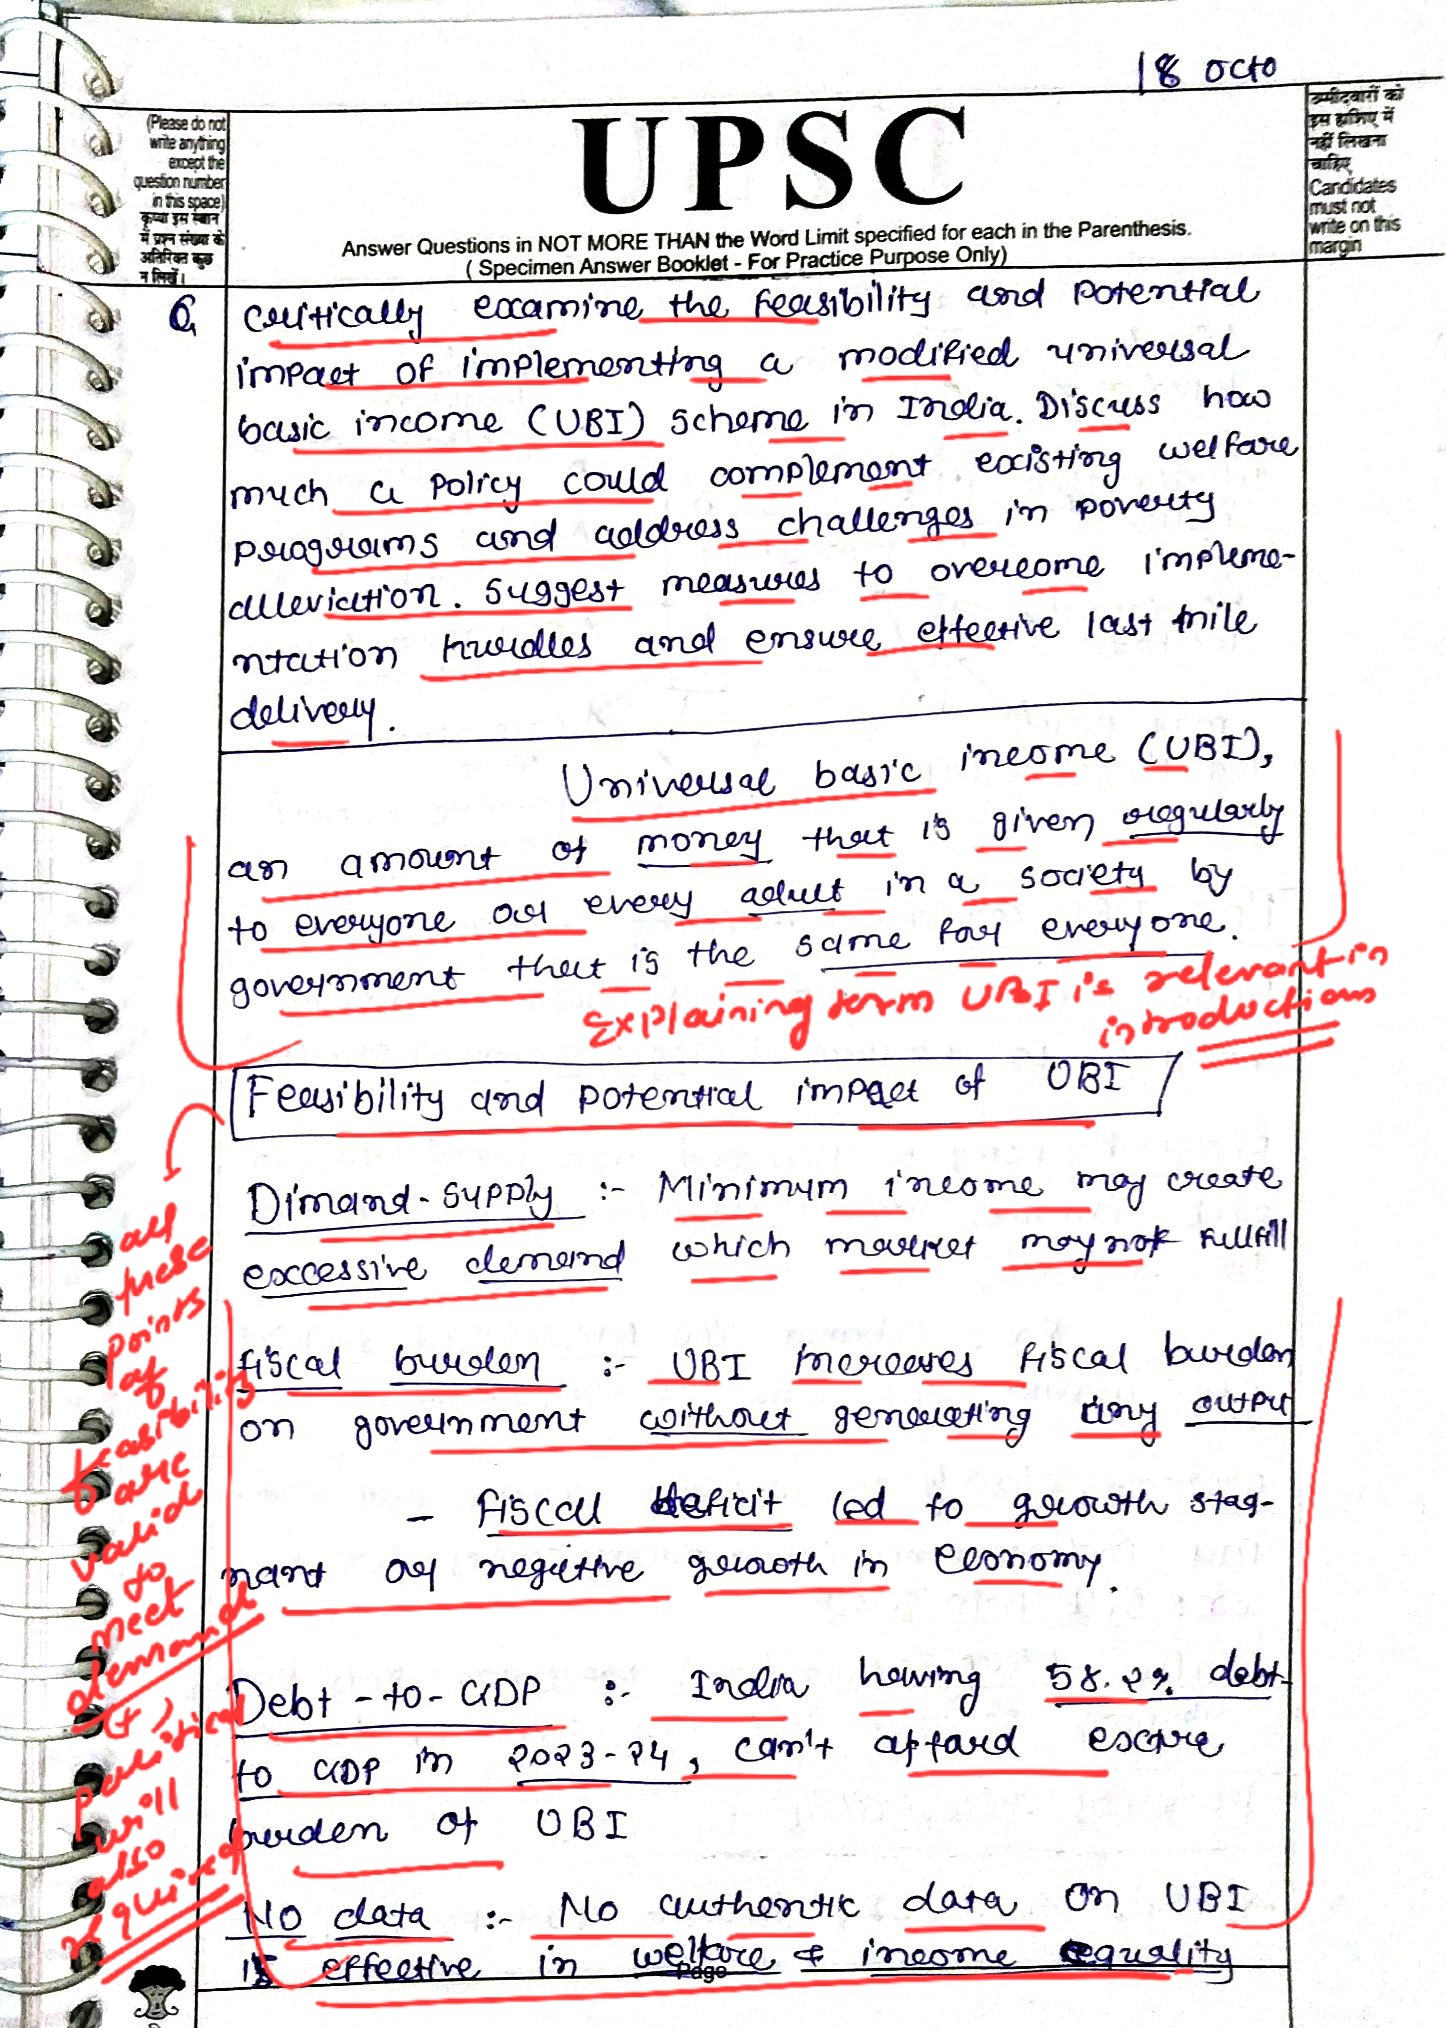 18 octo
(Please do not
write anything
except the
question number
in this space)
कृपया इस स्थान
में प्रश्न संख्या के
अतिरिक्त कुछ
न लिखें।
UPSC
Answer Questions in NOT MORE THAN the Word Limit specified for each in the Parenthesis.
( Specimen Answer Booklet - For Practice Purpose Only)
उम्मीदवारों को
इस हाशिए में
नहीं लिखना
चाहिए
Candidates
must not
write on this
margin
Q. critically examine the feasibility and potential
impact of implementing a modified universal
basic income (UBI) scheme in India. Discuss how
much a policy could complement existing welfare
programs and address challenges in poverty
alleviation. Suggest measures to overcome impleme-
ntation hurdles and ensure effective last mile
delivery.
Universal basic income (UBI),
an amount of money that is given regularly
to everyone or every adult in a society by
government that is the same for everyone.
Explaining term UBI is relevant in
introduction
Feasibility and potential impact of UBI
Dimand-supply :- Minimum income may create
excessive demand which market may not fullfill
fiscal burden :- UBI increases fiscal burden
on government without generating any output
- fiscal deficit led to growth stag-
nant or negative growth in economy.
Debt-to-GDP :- India having 58.2% debt-
to GDP in 2023-24, can't afford extra
burden of UBI
No data :- No authentic data on UBI
is effective in welfare & income equality
all
these
points
of
feasibility
are
valid
to
meet
demand
political
will
also
required
Page